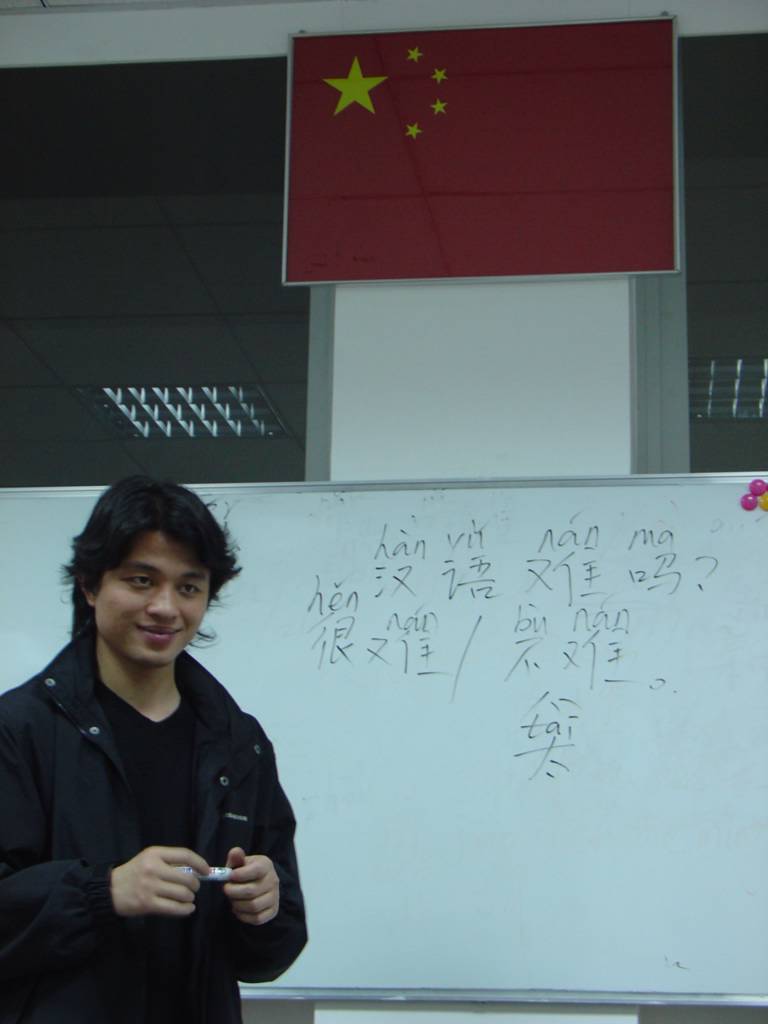 hàn yǔ nán ma
汉 语 难 吗?
hěn nán bù nán
很 难 / 不 难。
tài
太